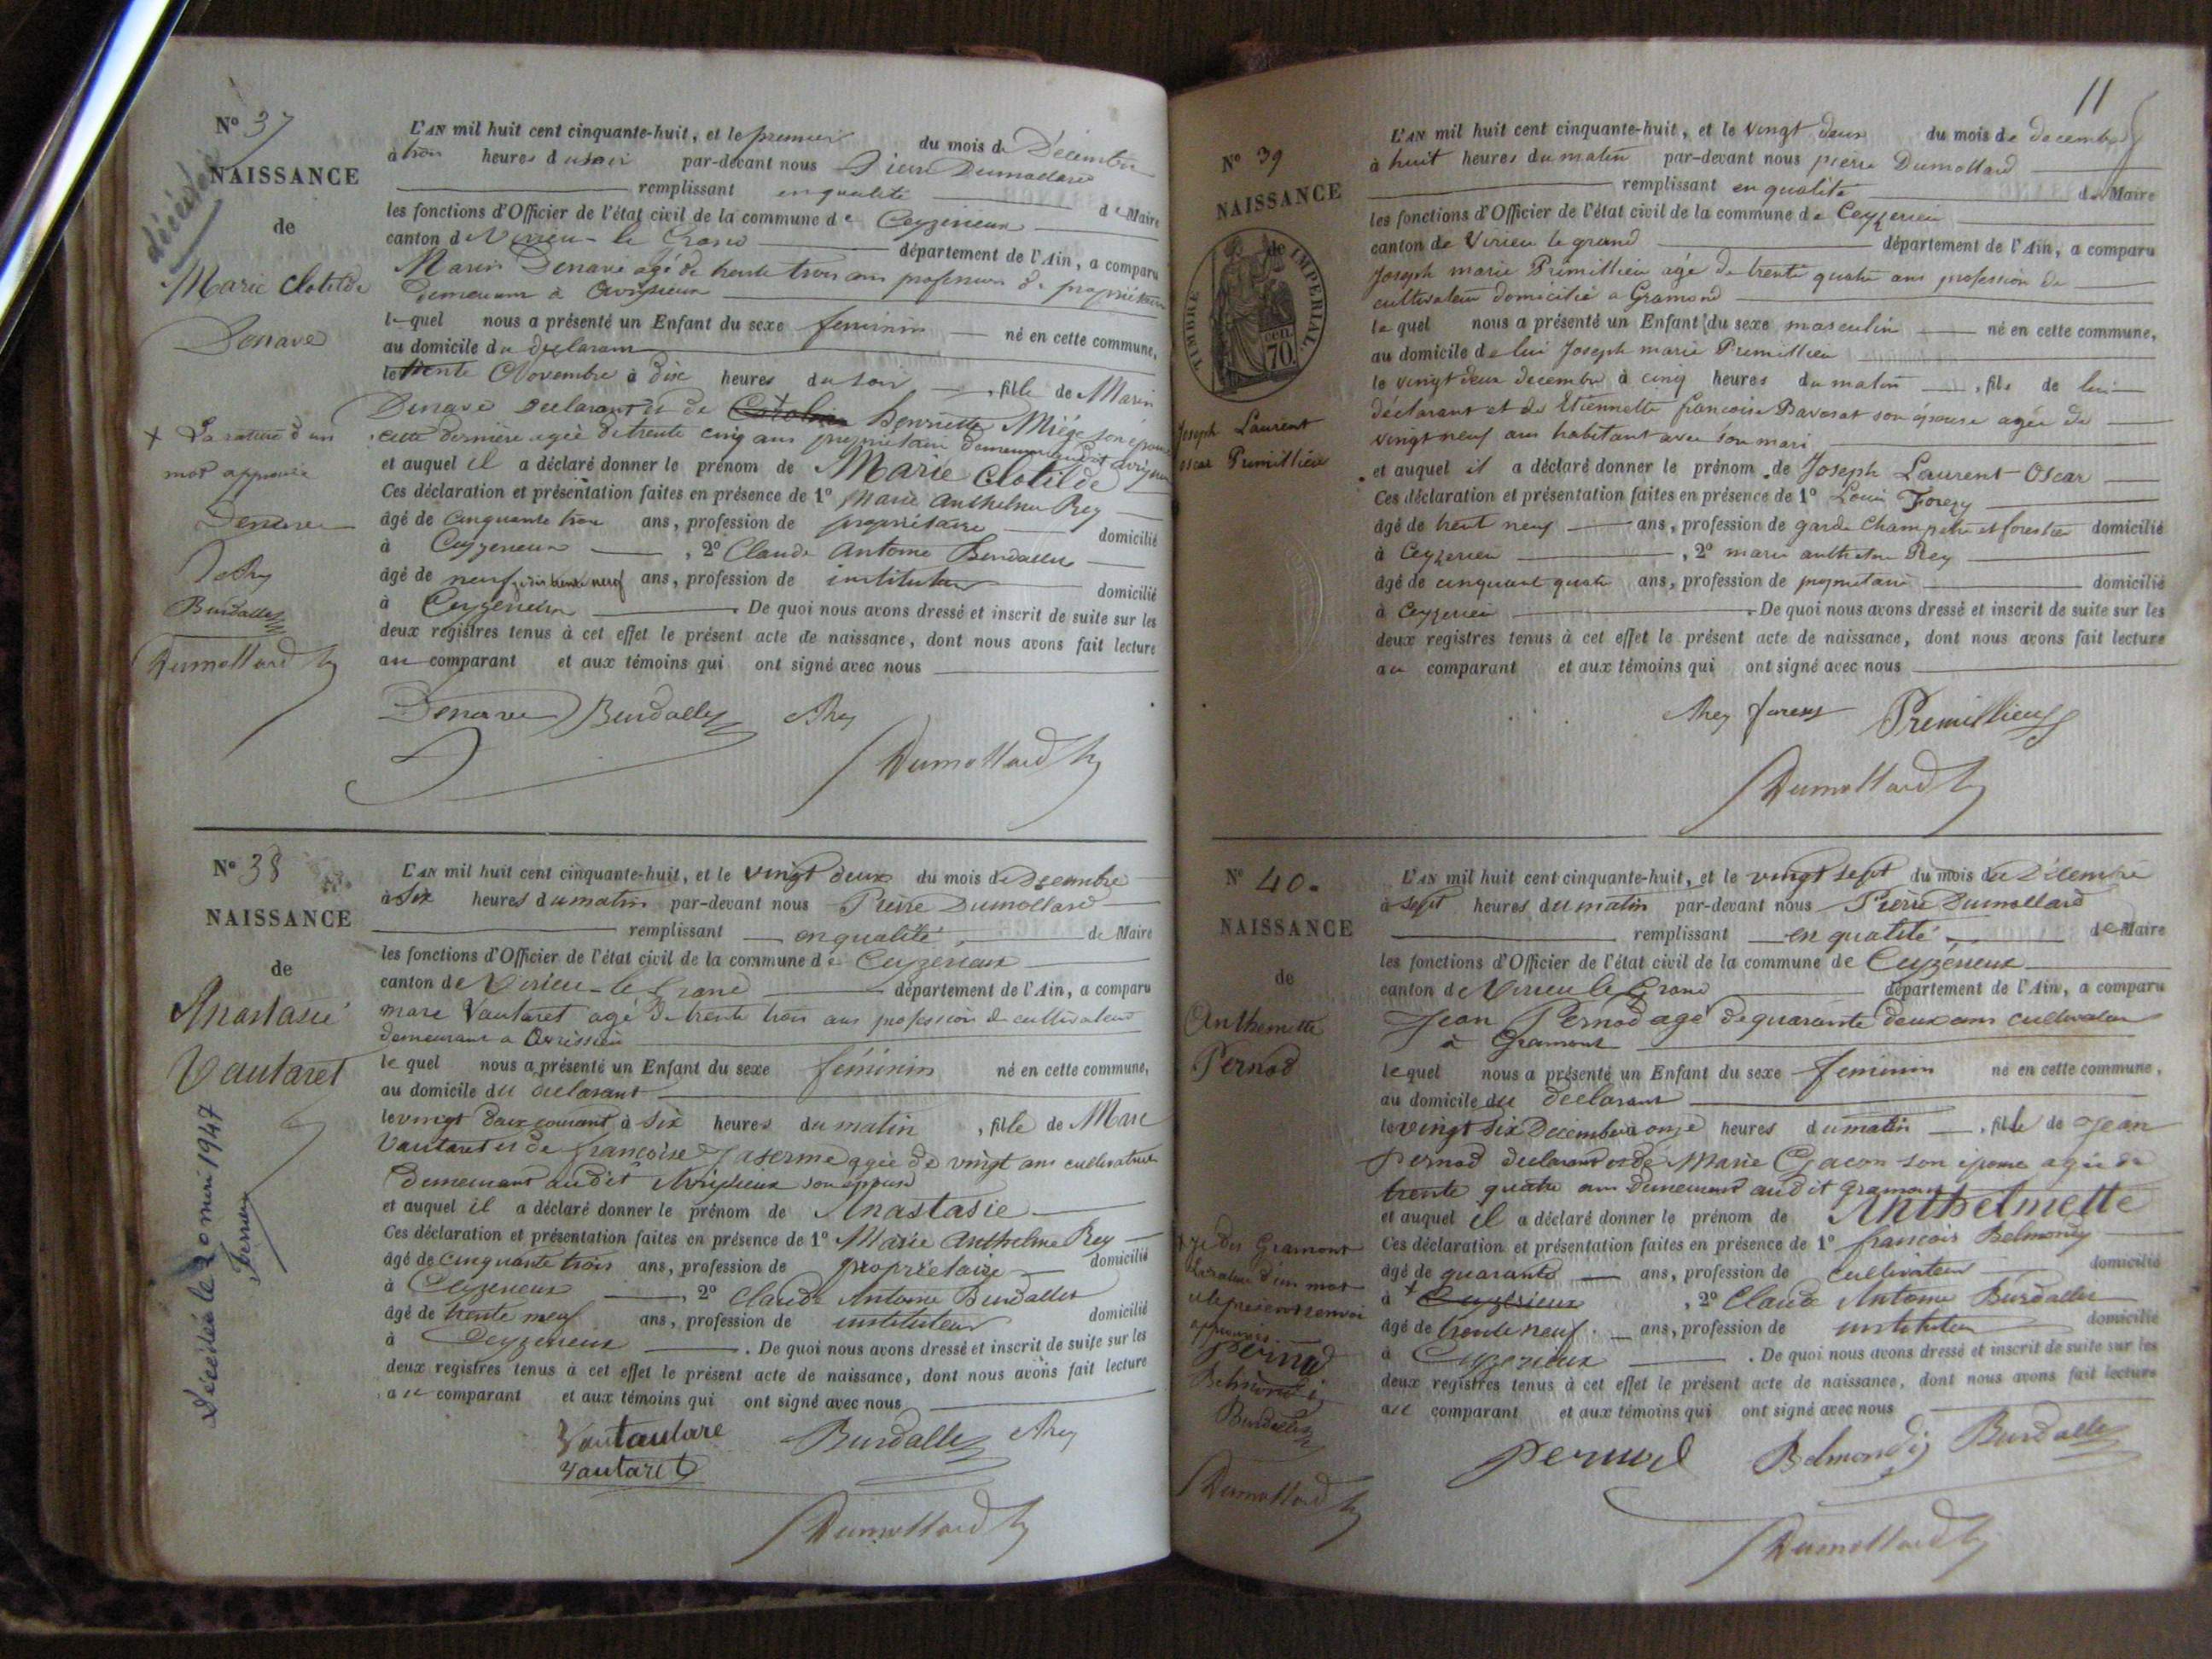 N° 37
NAISSANCE
de
Marie Clotilde
Denave
décédée
+ La rature d'un
mot approuvé
Denave
Burdallet
Dumollard
L'AN mil huit cent cinquante-huit, et le premier du mois de Décembre
à trois heures du soir par-devant nous Pierre Dumollard
remplissant en qualité de Maire
les fonctions d'Officier de l'état civil de la commune de Ceyzerieux
canton de Virieu-le Grand département de l'Ain, a comparu
Marin Denave agé de trente trois ans profession de propriétaire
demeurant à Avrissieux
lequel nous a présenté un Enfant du sexe feminin né en cette commune,
au domicile du declarant
le trente Novembre à dix heures du soir, fille de Marin
Denave declarant et de Henriette Miége son épouse
cette dernière agée de trente cinq ans propriétaire demeurant
et auquel il a déclaré donner le prénom de Marie Clotilde
Ces déclaration et présentation faites en présence de 1° Marie Anthelme Rey
âgé de cinquante trois ans, profession de propriétaire domicilié
à Ceyzerieux, 2° Claude Antoine Burdallet
âgé de trente neuf ans, profession de instituteur domicilié
à Ceyzerieux. De quoi nous avons dressé et inscrit de suite sur les
deux registres tenus à cet effet le présent acte de naissance, dont nous avons fait lecture
au comparant et aux témoins qui ont signé avec nous
Denave Burdallet Rey
Dumollard
N° 38
NAISSANCE
de
Anastasie
Vautaret
Décédée le 20 mai 1947
L'AN mil huit cent cinquante-huit, et le vingt deux du mois de Decembre
à six heures du matin par-devant nous Pierre Dumollard
remplissant en qualité de Maire
les fonctions d'Officier de l'état civil de la commune de Ceyzerieux
canton de Virieu-le Grand département de l'Ain, a comparu
marc Vautaret agé de trente trois ans profession de cultivateur
demeurant a Avrissieu
le quel nous a présenté un Enfant du sexe féminin né en cette commune,
au domicile du declarant
le vingt deux courant à six heures du matin, fille de Marc
Vautaret et de françoise agée de vingt ans cultivatrice
demeurant audit Avrissieux son epouse
et auquel il a déclaré donner le prénom de Anastasie
Ces déclaration et présentation faites en présence de 1° Marie Anthelme Rey
âgé de cinquante trois ans, profession de propriétaire domicilié
à Ceyzerieux, 2° Claude Antoine Burdallet
âgé de trente neuf ans, profession de instituteur domicilié
à Ceyzerieux. De quoi nous avons dressé et inscrit de suite sur les
deux registres tenus à cet effet le présent acte de naissance, dont nous avons fait lecture
au comparant et aux témoins qui ont signé avec nous
Vautaret Burdallet Rey
Dumollard
11
N° 39
NAISSANCE
de
TIMBRE IMPERIAL
70 cen.
Joseph Laurent
oscar Premillieu
L'AN mil huit cent cinquante-huit, et le vingt deux du mois de decembre
à huit heures du matin par-devant nous pierre Dumollard
remplissant en qualité de Maire
les fonctions d'Officier de l'état civil de la commune de Ceyzerieu
canton de Virieu le grand département de l'Ain, a comparu
Joseph marie Premillieu agé de trente quatre ans profession de
cultivateur domicilié a Gramond
le quel nous a présenté un Enfant du sexe masculin né en cette commune,
au domicile de lui Joseph marie Premillieu
le vingt deux decembre à cinq heures du matin, fils de lui
déclarant et de Etiennette françoise Bavosat son épouse agée de
vingt neuf ans habitant avec son mari
et auquel il a déclaré donner le prénom de Joseph Laurent Oscar
Ces déclaration et présentation faites en présence de 1° Louis Forezy
âgé de trent neuf ans, profession de garde champetre et forestier domicilié
à Ceyzerieu, 2° marie anthelme Rey
âgé de cinquant quatre ans, profession de propriétaire domicilié
à Ceyzerieu. De quoi nous avons dressé et inscrit de suite sur les
deux registres tenus à cet effet le présent acte de naissance, dont nous avons fait lecture
au comparant et aux témoins qui ont signé avec nous
Rey forezy Premillieu
Dumollard
N° 40.
NAISSANCE
de
Anthemette
Pernod
Gramont
La rature d'un mot
et le présent renvoi
approuvés.
Pernod
Belmondy
Burdallet
Dumollard
L'AN mil huit cent cinquante-huit, et le vingt sept du mois de Décembre
à sept heures du matin par-devant nous Pierre Dumollard
remplissant en qualité de Maire
les fonctions d'Officier de l'état civil de la commune de Ceyzérieux
canton de Virieu le Grand département de l'Ain, a comparu
Jean Pernod agé de quarante deux ans cultivateur
à Gramont
lequel nous a présenté un Enfant du sexe feminin né en cette commune,
au domicile du declarant
le vingt six Decembre à onze heures du matin, fille de Jean
Pernod declarant et de Marie Gacon son épouse agée de
trente quatre ans demeurant audit Gramont
et auquel il a déclaré donner le prénom de Anthelmette
Ces déclaration et présentation faites en présence de 1° francois Belmondy
âgé de quarante ans, profession de cultivateur domicilié
à + Ceyzérieux, 2° Claude Antoine Burdallet
âgé de trente neuf ans, profession de instituteur domicilié
à Ceyzerieux. De quoi nous avons dressé et inscrit de suite sur les
deux registres tenus à cet effet le présent acte de naissance, dont nous avons fait lecture
au comparant et aux témoins qui ont signé avec nous
Pernod Belmondy Burdallet
Dumollard